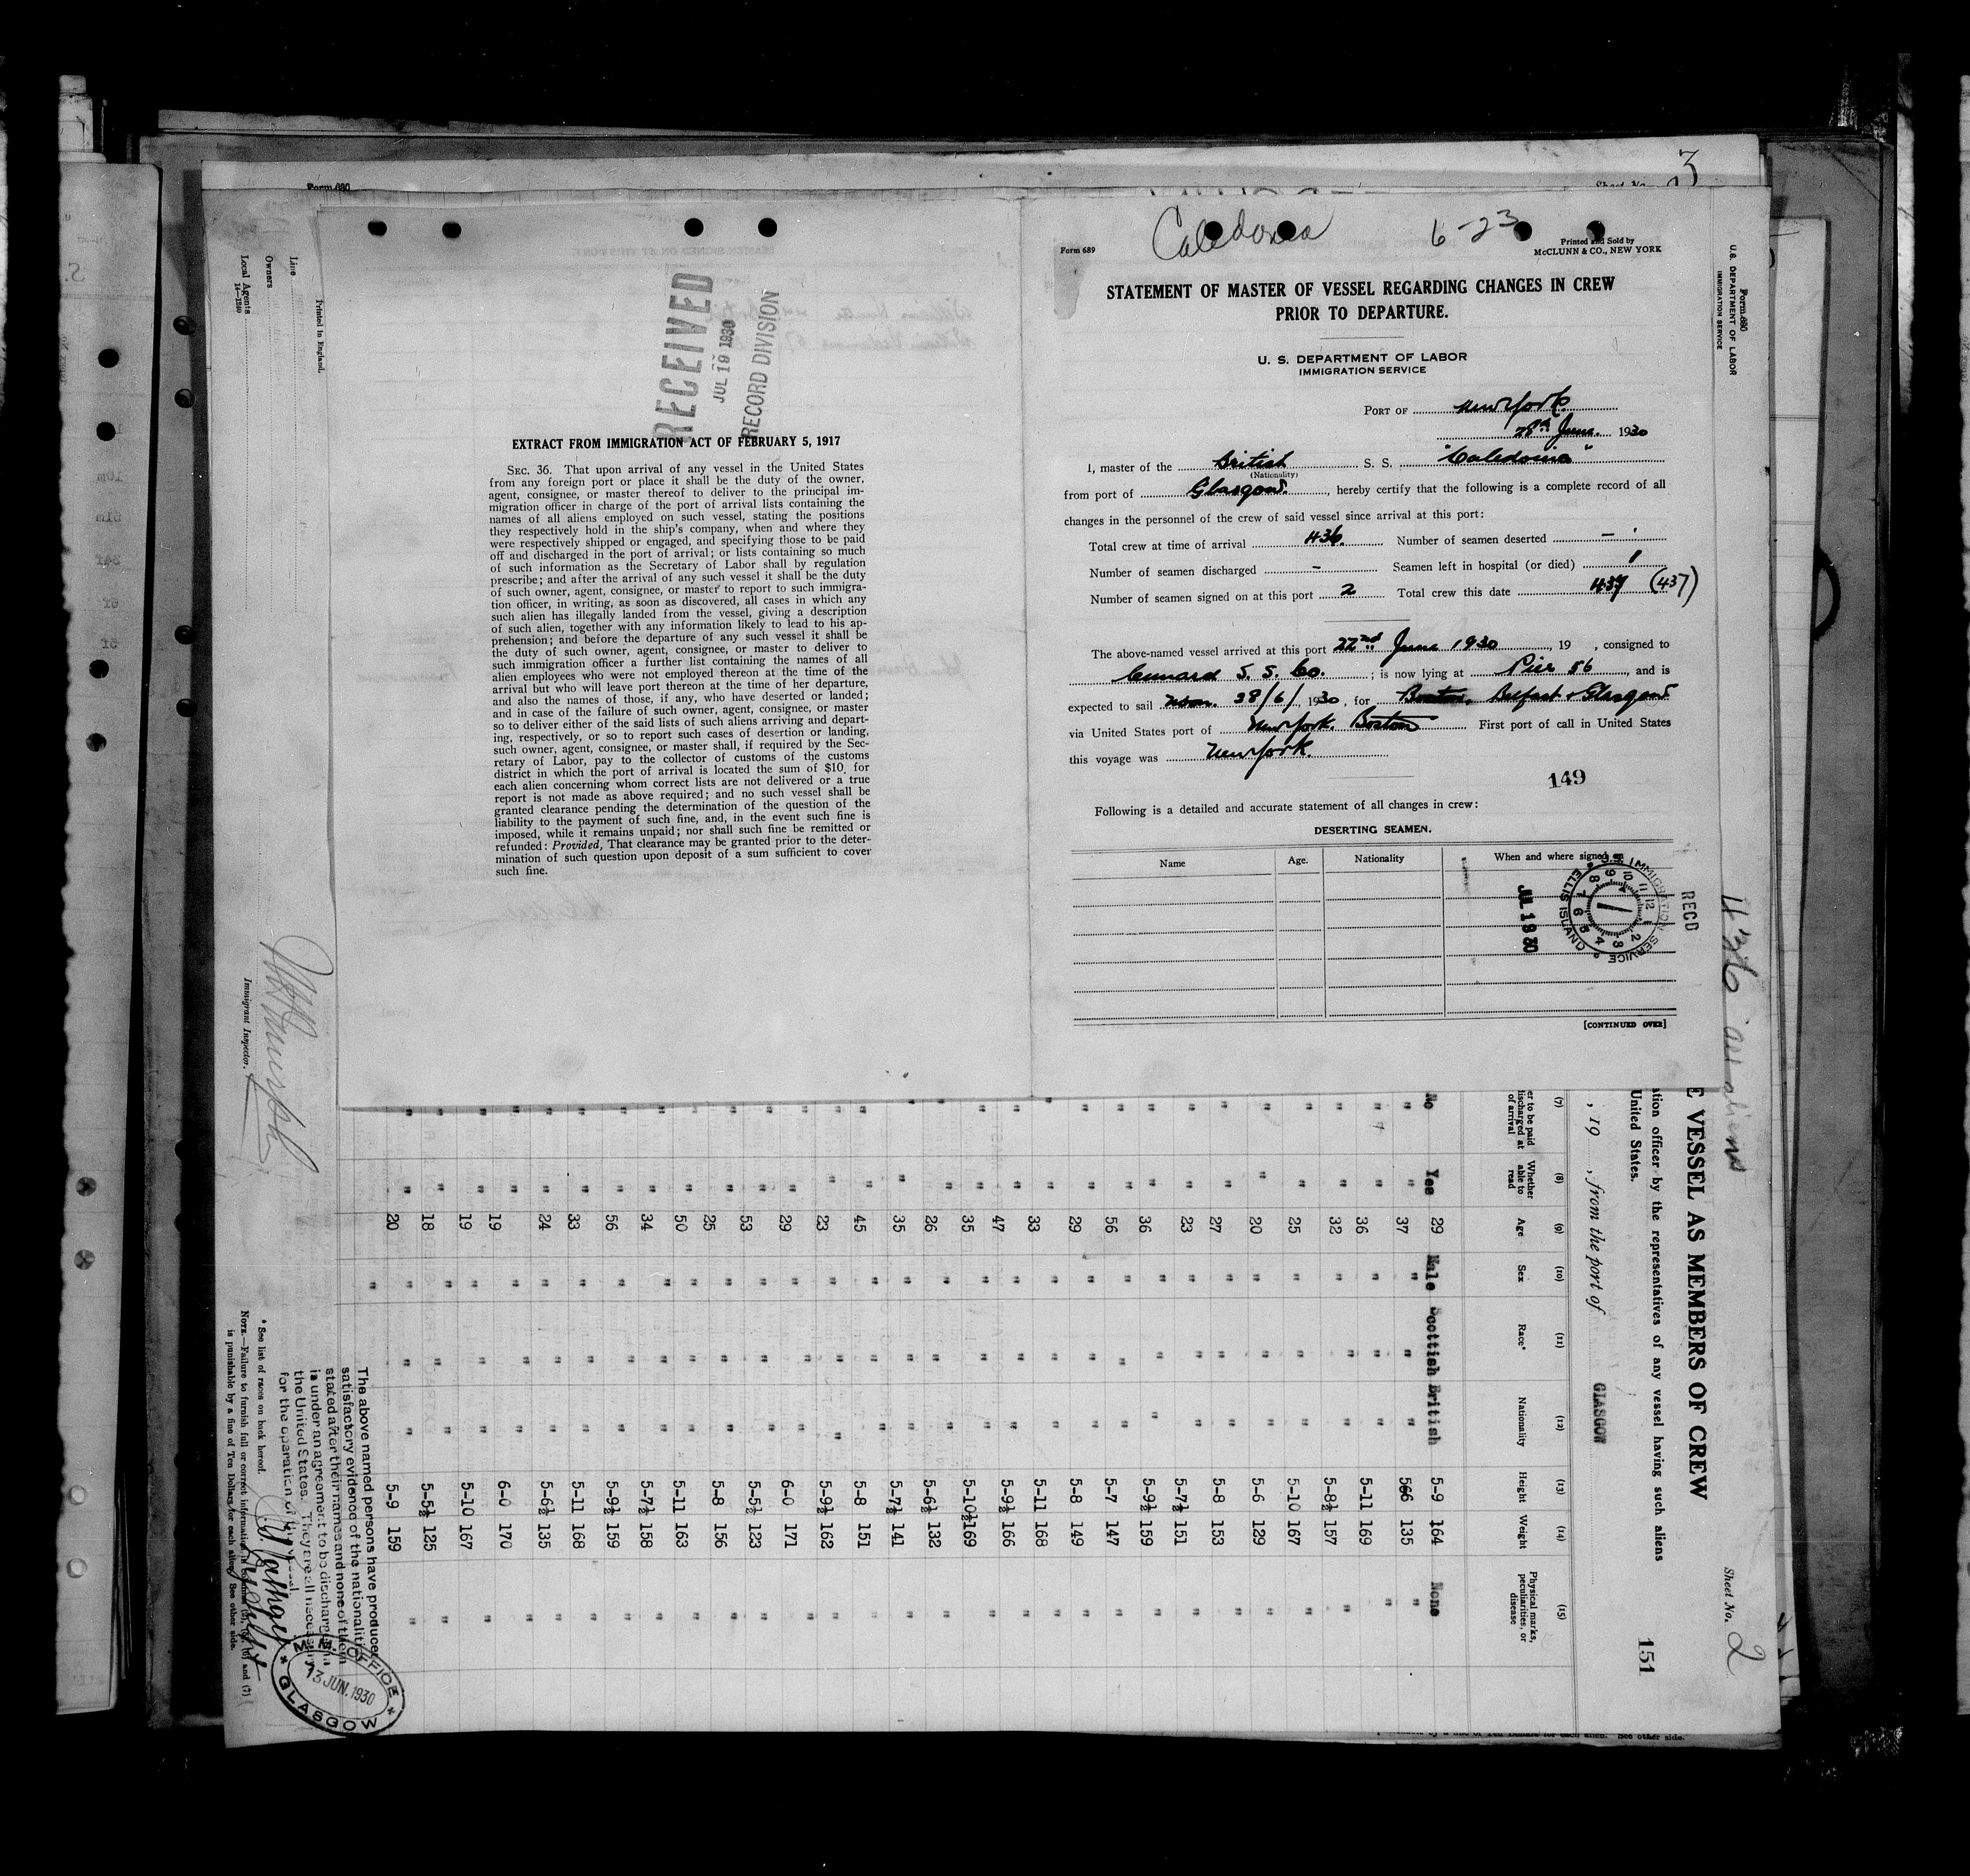 3
Form 680
Line
Owners
Local Agents
14—1240
Printed in England.
RECEIVED
JUL 19 1930
RECORD DIVISION
EXTRACT FROM IMMIGRATION ACT OF FEBRUARY 5, 1917
SEC. 36. That upon arrival of any vessel in the United States
from any foreign port or place it shall be the duty of the owner,
agent, consignee, or master thereof to deliver to the principal im-
migration officer in charge of the port of arrival lists containing the
names of all aliens employed on such vessel, stating the positions
they respectively hold in the ship's company, when and where they
were respectively shipped or engaged, and specifying those to be paid
off and discharged in the port of arrival; or lists containing so much
of such information as the Secretary of Labor shall by regulation
prescribe; and after the arrival of any such vessel it shall be the duty
of such owner, agent, consignee, or master to report to such immigra-
tion officer, in writing, as soon as discovered, all cases in which any
such alien has illegally landed from the vessel, giving a description
of such alien, together with any information likely to lead to his ap-
prehension; and before the departure of any such vessel it shall be
the duty of such owner, agent, consignee, or master to deliver to
such immigration officer a further list containing the names of all
alien employees who were not employed thereon at the time of the
arrival but who will leave port thereon at the time of her departure,
and also the names of those, if any, who have deserted or landed;
and in case of the failure of such owner, agent, consignee, or master
so to deliver either of the said lists of such aliens arriving and depart-
ing, respectively, or so to report such cases of desertion or landing,
such owner, agent, consignee, or master shall, if required by the Sec-
retary of Labor, pay to the collector of customs of the customs
district in which the port of arrival is located the sum of $10 for
each alien concerning whom correct lists are not delivered or a true
report is not made as above required; and no such vessel shall be
granted clearance pending the determination of the question of the
liability to the payment of such fine, and, in the event such fine is
imposed, while it remains unpaid; nor shall such fine be remitted or
refunded: Provided, That clearance may be granted prior to the deter-
mination of such question upon deposit of a sum sufficient to cover
such fine.
Caledonia 6-23
Form 689
Printed and Sold by
McCLUNN & CO., NEW YORK
STATEMENT OF MASTER OF VESSEL REGARDING CHANGES IN CREW
PRIOR TO DEPARTURE.
U. S. DEPARTMENT OF LABOR
IMMIGRATION SERVICE
PORT OF New York
28th June. 1930
I, master of the British S. S. "Caledonia"
(Nationality)
from port of Glasgow, hereby certify that the following is a complete record of all
changes in the personnel of the crew of said vessel since arrival at this port:
Total crew at time of arrival 436. Number of seamen deserted –
Number of seamen discharged – Seamen left in hospital (or died) 1
Number of seamen signed on at this port 2 Total crew this date 437 (437)
The above-named vessel arrived at this port 22nd June 1930, 19 , consigned to
Cunard S. S. Co. ; is now lying at Pier 56, and is
expected to sail noon. 28/6/, 1930, for Boston, Belfast & Glasgow.
via United States port of New York. Boston First port of call in United States
this voyage was New York.
149
Following is a detailed and accurate statement of all changes in crew:
DESERTING SEAMEN.
Name Age. Nationality When and where signed on
U.S. IMMIGRATION SERVICE
ELLIS ISLAND
JUL 1 9 30
RECD
[CONTINUED OVER]
Form 680
U.S. DEPARTMENT OF LABOR
IMMIGRATION SERVICE
436 all aliens
E VESSEL AS MEMBERS OF CREW
Sheet No. 2
ation officer by the representatives of any vessel having such aliens
United States.
151
, 19 , from the port of GLASGOW
(7) (8) (9) (10) (11) (12) (13) (14) (15)
er to be paid
discharged at
of arrival
Whether
able to
read
Age
Sex
Race*
Nationality
Height
Weight
Physical marks,
peculiarities, or
disease
No Yes 29 Male Scottish British 5-9 164 None
" " 37 " " " 566 135 "
" " 36 " " " 5-11 169 "
" " 32 " " " 5-8½ 157 "
" " 25 " " " 5-10 167 "
" " 20 " " " 5-6 129 "
" " 27 " " " 5-8 153 "
" " 23 " " " 5-7½ 151 "
" " 36 " " " 5-9½ 159 "
" " 56 " " " 5-7 147 "
" " 29 " " " 5-8 149 "
" " 33 " " " 5-11 168 "
" " 47 " " " 5-9½ 166 "
" " 35 " " " 5-10½ 169 "
" " 26 " " " 5-6½ 132 "
" " 35 " " " 5-7½ 141 "
" " 45 " " " 5-8 151 "
" " 23 " " " 5-9½ 162 "
" " 29 " " " 6-0 171 "
" " 53 " " " 5-5½ 123 "
" " 25 " " " 5-8 156 "
" " 50 " " " 5-11 163 "
" " 34 " " " 5-7½ 158 "
" " 56 " " " 5-9½ 159 "
" " 33 " " " 5-11 168 "
" " 24 " " " 5-6½ 135 "
" " 19 " " " 6-0 170 "
" " 19 " " " 5-10 167 "
" " 18 " " " 5-5½ 125 "
" " 20 " " " 5-9 159 "
The above named persons have produced
satisfactory evidence of the nationality
stated after their names and none of them
is under an agreement to be discharged in
the United States. They are all necessary
for the operation of the vessel.
M.M. OFFICE
13 JUN. 1930
GLASGOW
Immigrant Inspector.
* See list of races on back hereof.
NOTE.—Failure to furnish full or correct information
is punishable by a fine of Ten Dollars for each alien. See other side.